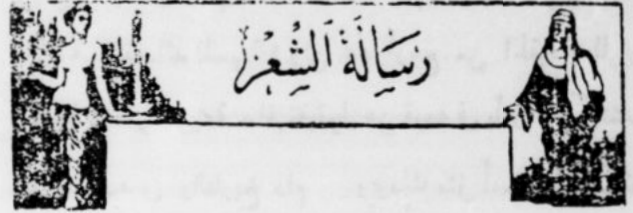 رِسَالَةُ اَلشِّعْرْ